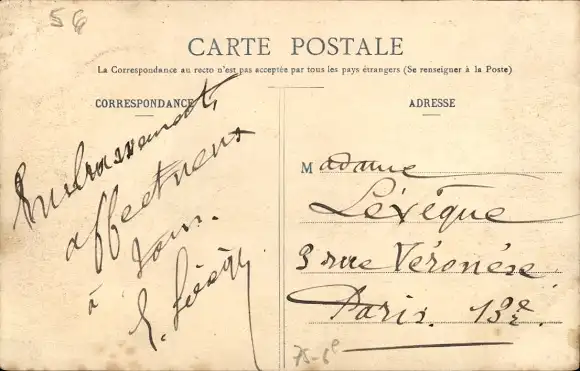 56
CARTE POSTALE
La Correspondance au recto n'est pas acceptée par tous les pays étrangers (Se renseigner à la Poste)
CORRESPONDANCE
ADRESSE
Embrassements
affectueux
à tous.
E. Lévêque
Madame
Lévêque
3 rue Véronèse
Paris. 13e.
75-6e